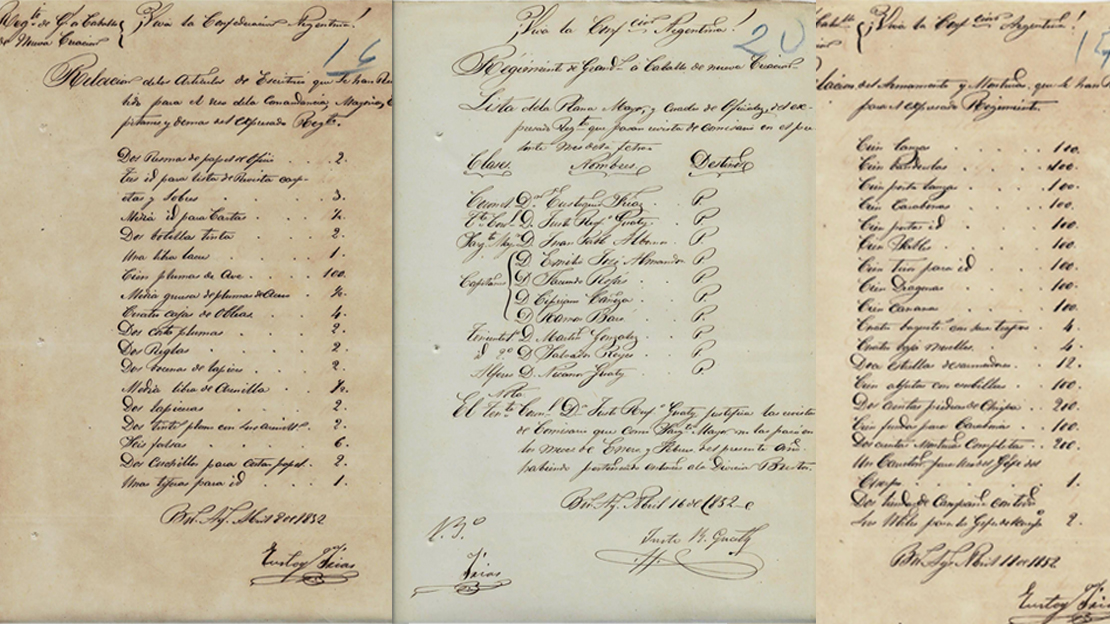 Regto. de G. a Caballo
de Nueva Creacion
¡Viva la Confederacion Argentina!
16
Relacion delos Articulos de Escritorio que se han
tido para el uso dela Comandancia, Mayoria, C
pitanes y demas del expresado Regto.
Dos Resmas de papel de Oficio 2.
Tres id para lista de Revista carp-
etas y Sobres 3.
Media id para Cartas ½.
Dos botellas tinta 2.
Una libra lacre 1.
Cien plumas de Ave 100.
Media gruesa de plumas de Acero ½.
Cuatro cajas de Obleas 4.
Dos corta plumas 2.
Dos Reglas 2.
Dos docenas de lapices 2.
Media libra de Arenilla ½.
Dos lapiceros 2.
Dos 2.
Seis falsas 6.
Dos Cuchillos para cortar papel 2.
Unas tijeras para id 1.
Bs. Ays. Abril 9 de 1852
Eustoqo. Frias
¡Viva la Confcion Argentina!
20
Regimiento de Grands. a Caballo de nueva Creacion
Lista dela Plana Mayor, y Cuadro de Oficiales del ex-
presado Regto. que pasan revista de comisario en el pre-
sente mes dela fecha
Clases Nombres Destinos
Coronel Dn. Eustoquio Frias P.
Te. Corl. D. Justo Rufo. Guaty P.
Sargto. Mayr. D. Juan José Albano P.
Capitanes D. Emilio José Almandos P.
D. Facundo P.
D. Cipriano P.
D. Ramon P.
Teniente 1o. D. Martin Gonzalez P.
id 2o. D. Salvador Reyes P.
Alferes D. Nicanor Guaty P.
Nota
El Tente. Corl. Dn. Justo Rufo. Guaty justifica las revistas
de Comisario que como Sargto. Mayor no las pasó en
los meses de Enero y Febrero del presente año,
habiendo pertenecido entonces ala Division
Bs. Ays. Abril 16 de 1852
V. Bo.
Frias
Justo R. Guaty
Caballo
¡Viva la Confcion Argentina!
15
lacion del Armamento y Monturas que se han
para el expresado Regimiento
Cien lanzas 100.
Cien banderolas 100.
Cien porta lanzas 100.
Cien Carabinas 100.
Cien portas id 100.
Cien Sables 100.
Cien tiros para id 100.
Cien Dragonas 100.
Cien Cananas 100.
Cuatro 4.
Cuatro baja muelles 4.
Doce Estrellas desarmadores 12.
Cien 100.
Dos cientas piedras de Chispa 200.
Cien fundas para Carabinas 100.
Dos cientas Monturas Completas 200.
Un para los dos Gefes del
Cuerpo 1.
Dos tiendas de Campaña con todos
sus utiles para los Gefes del 2.
Bs. Ays. Abril 11 de 1852
Eustoqo. Frias